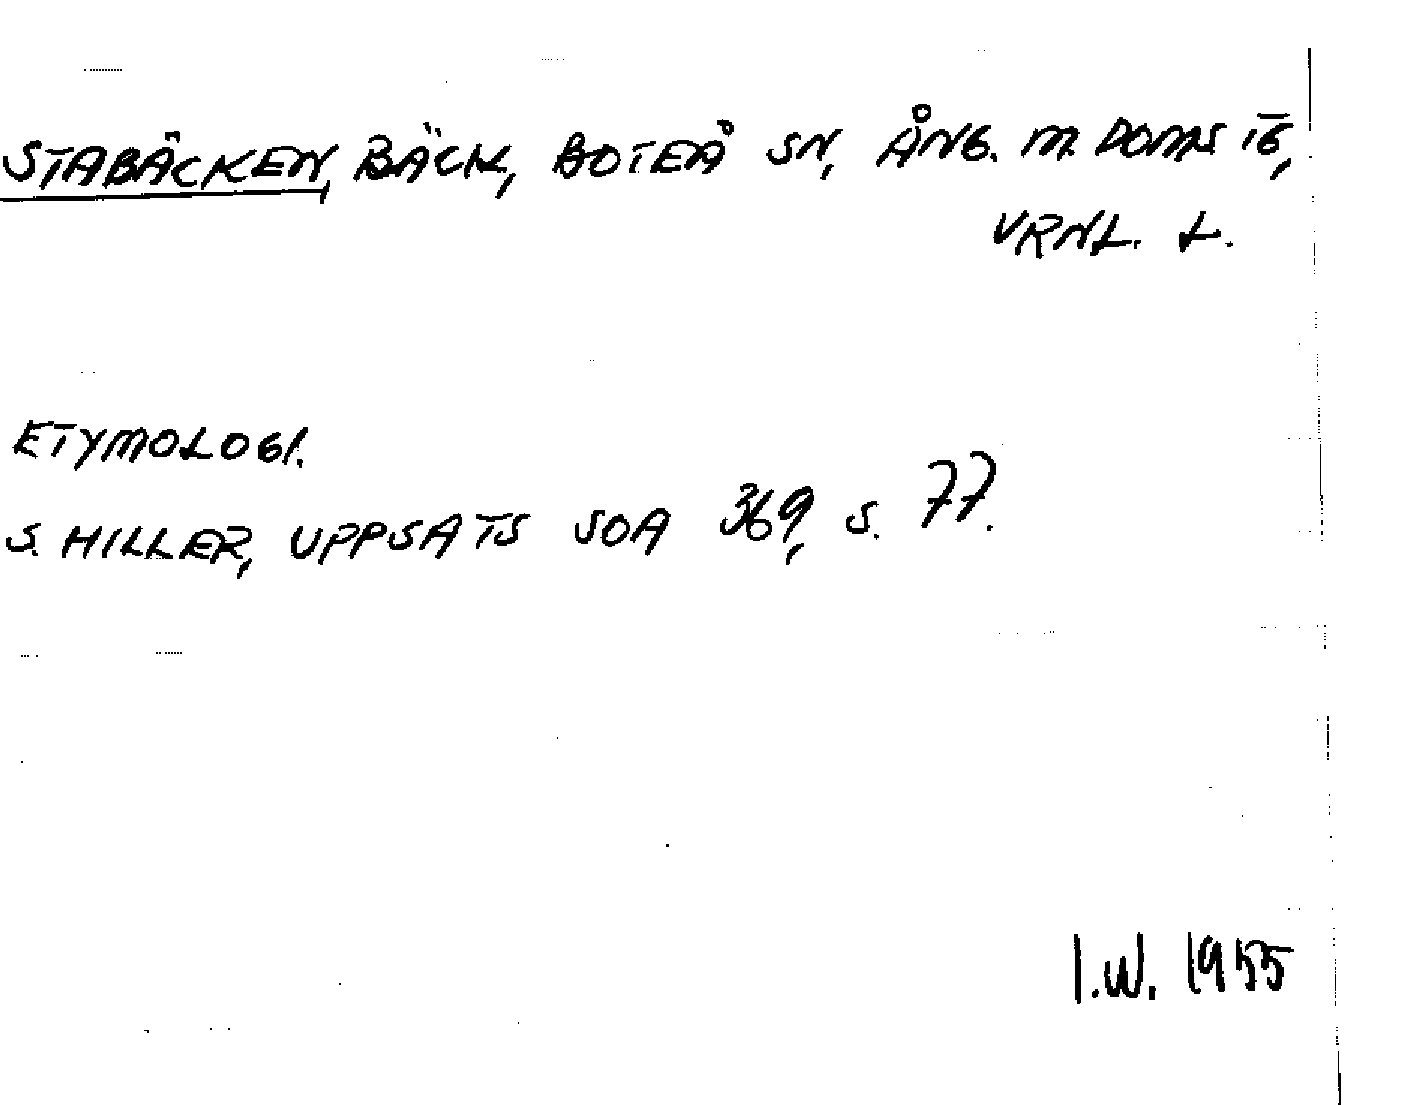 STABÄCKEN, BÄCK, BOTEÅ SN, ÅNG. M. DOMS TG,
VRNL. L.
ETYMOLOGI.
S. HILLER, UPPSATS SOA 369, S. 77.
I.W. 1955